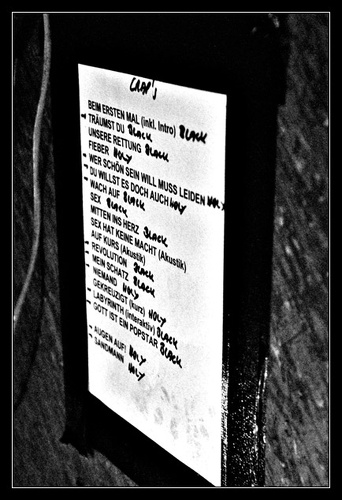 CRAP'S
BEIM ERSTEN MAL (inkl. Intro) BLACK
- TRÄUMST DU BLACK
UNSERE RETTUNG BLACK
FIEBER HOLY
- WER SCHÖN SEIN WILL MUSS LEIDEN HOLY
- DU WILLST ES DOCH AUCH HOLY
- WACH AUF BLACK
SEX BLACK
MITTEN INS HERZ BLACK
SEX HAT KEINE MACHT (Akustik)
AUF KURS (Akustik)
- REVOLUTION BLACK
- MEIN SCHATZ BLACK
- NIEMAND HOLY
GEKREUZIGT (kurz) HOLY
- LABYRINTH (interaktiv) BLACK
- GOTT IST EIN POPSTAR BLACK
- AUGEN AUF! HOLY
- SANDMANN HOLY